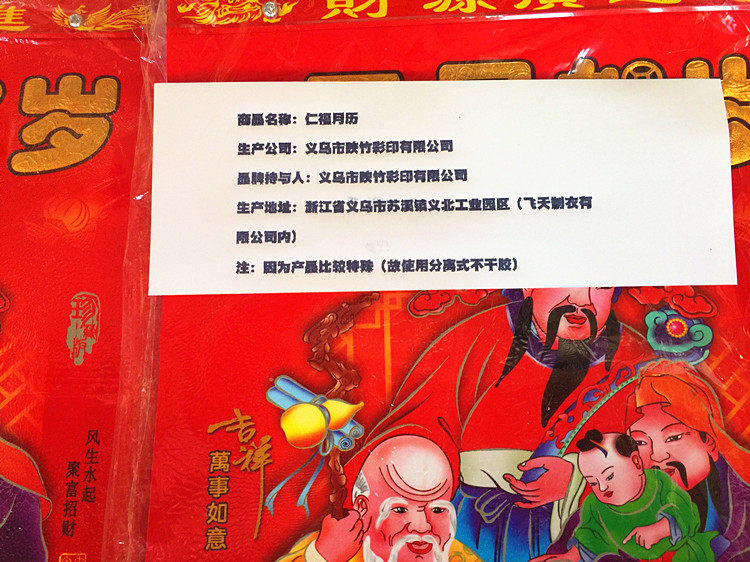 岁
商品名称：仁福月历
生产公司：义乌市映竹彩印有限公司
品牌持与人：义乌市映竹彩印有限公司
生产地址：浙江省义乌市苏溪镇义北工业园区（飞天制衣有
限公司内）
注：因为产品比较特殊（故使用分离式不干胶）
吉祥
萬事如意
风生水起
聚富招财